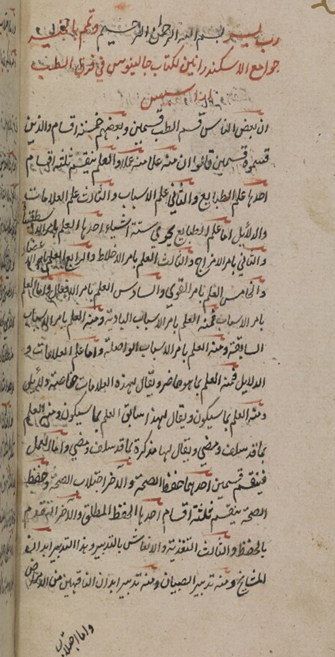 رب يسر بسم الله الرحمن الرحيم وتمم بالخير
جوامع الاسكندرانيين لكتاب جالينوس في فرق الطب
ان بعض الناس قسم الطب قسمين وبعضهم خمسة اقسام والذين
قسموه قسمين قالوا ان منه علما ومنه عملا والعلم ينقسم ثلثة اقسام
احدها علم الطبايع والثاني علم الاسباب والثالث علم العلامات
والدلايل اما علم الطبايع ستة اشياء احدها العلم
والثاني بامر الامزاج والثالث العلم بامر الاخلاط والرابع العلم
والخامس العلم بامر القوى والسادس العلم بامر الافعال واما العلم
بامر الاسباب فمنه العلم بامر الاسباب البادئة ومنه العلم بامر الاسباب
السابقة ومنه العلم بامر الاسباب الواصلة واما علم العلامات و
الدلايل فمنه العلم بما هو حاضر ويقال لهذه العلامات حاضرة
ومنه العلم بما سيكون ويقال لهذا سابق العلم بما سيكون ومنه العلم
بما قد سلف ومضى ويقال لها مذكرة بما قد سلف ومضى واما العمل
فينقسم قسمين احدهما حفظ الصحة والاخر اجتلاب الصحة وحفظ
الصحة ينقسم ثلثة اقسام احدها الحفظ المطلق والاخر التقدم
بالحفظ والثالث التغذية والانعاش بالتدبير وبهذا التدبير ابدان
المشايخ ومنه تدبير الصبيان ومنه تدبير ابدان الناقهين من الامراض
واما اجتلاب